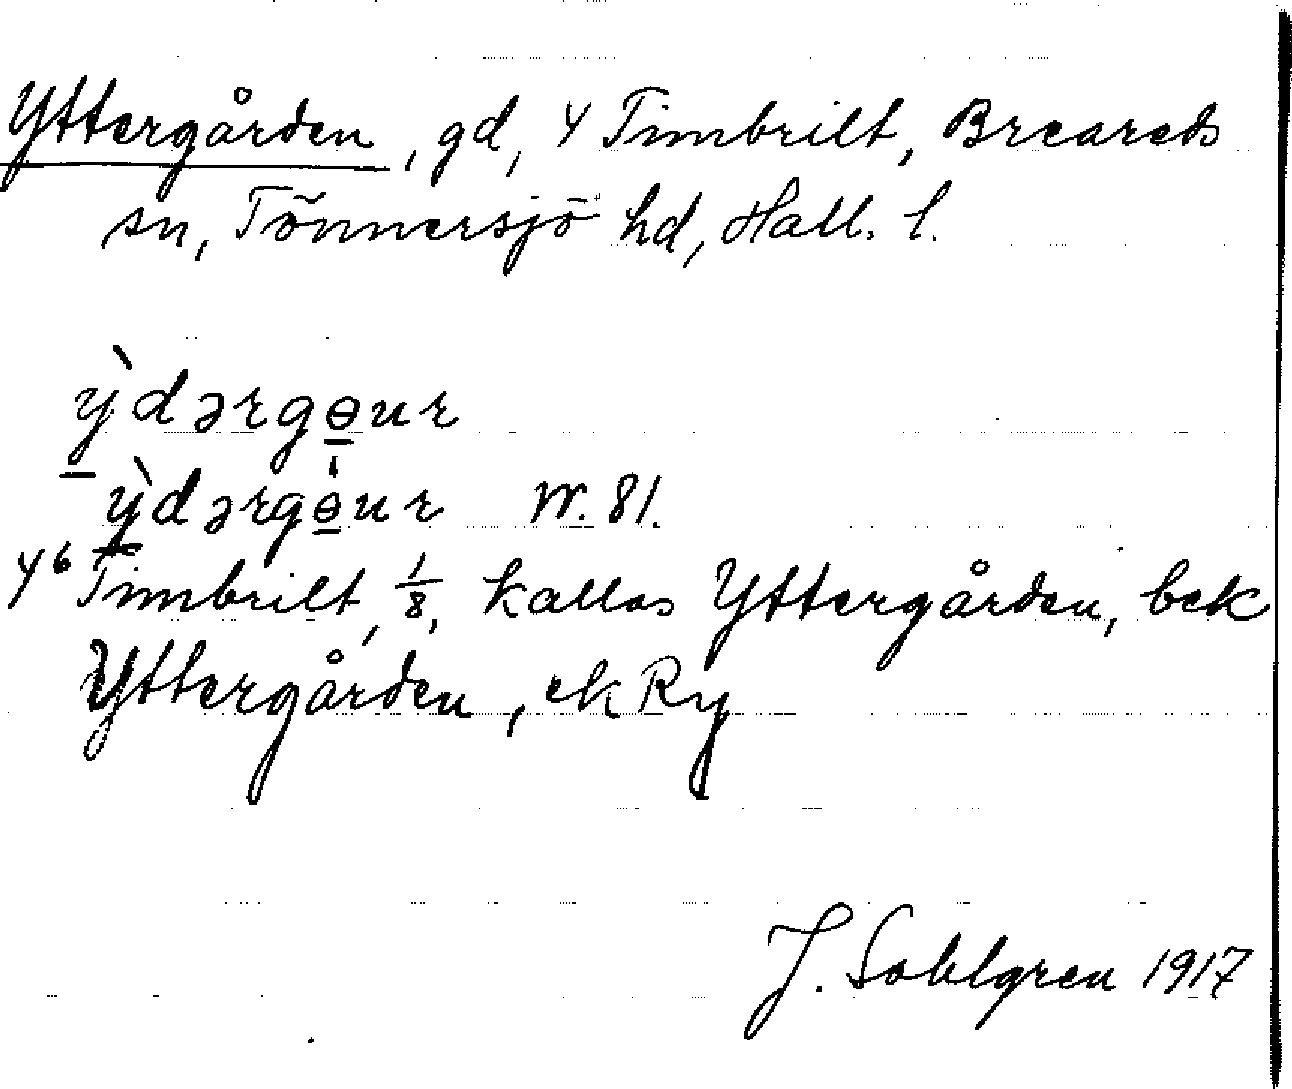 Yttergården, gd, 4 Timbrilt, Breareds
sn, Tönnersjö hd, Hall. l.
ỳ̠dərgɵ̠ur
ỳ̠dərgɵ̠ur W. 81.
4⁶ Timbrilt, 1/8, kallas Yttergården, bek
Yttergården, ek Ry
J. Sahlgren 1917